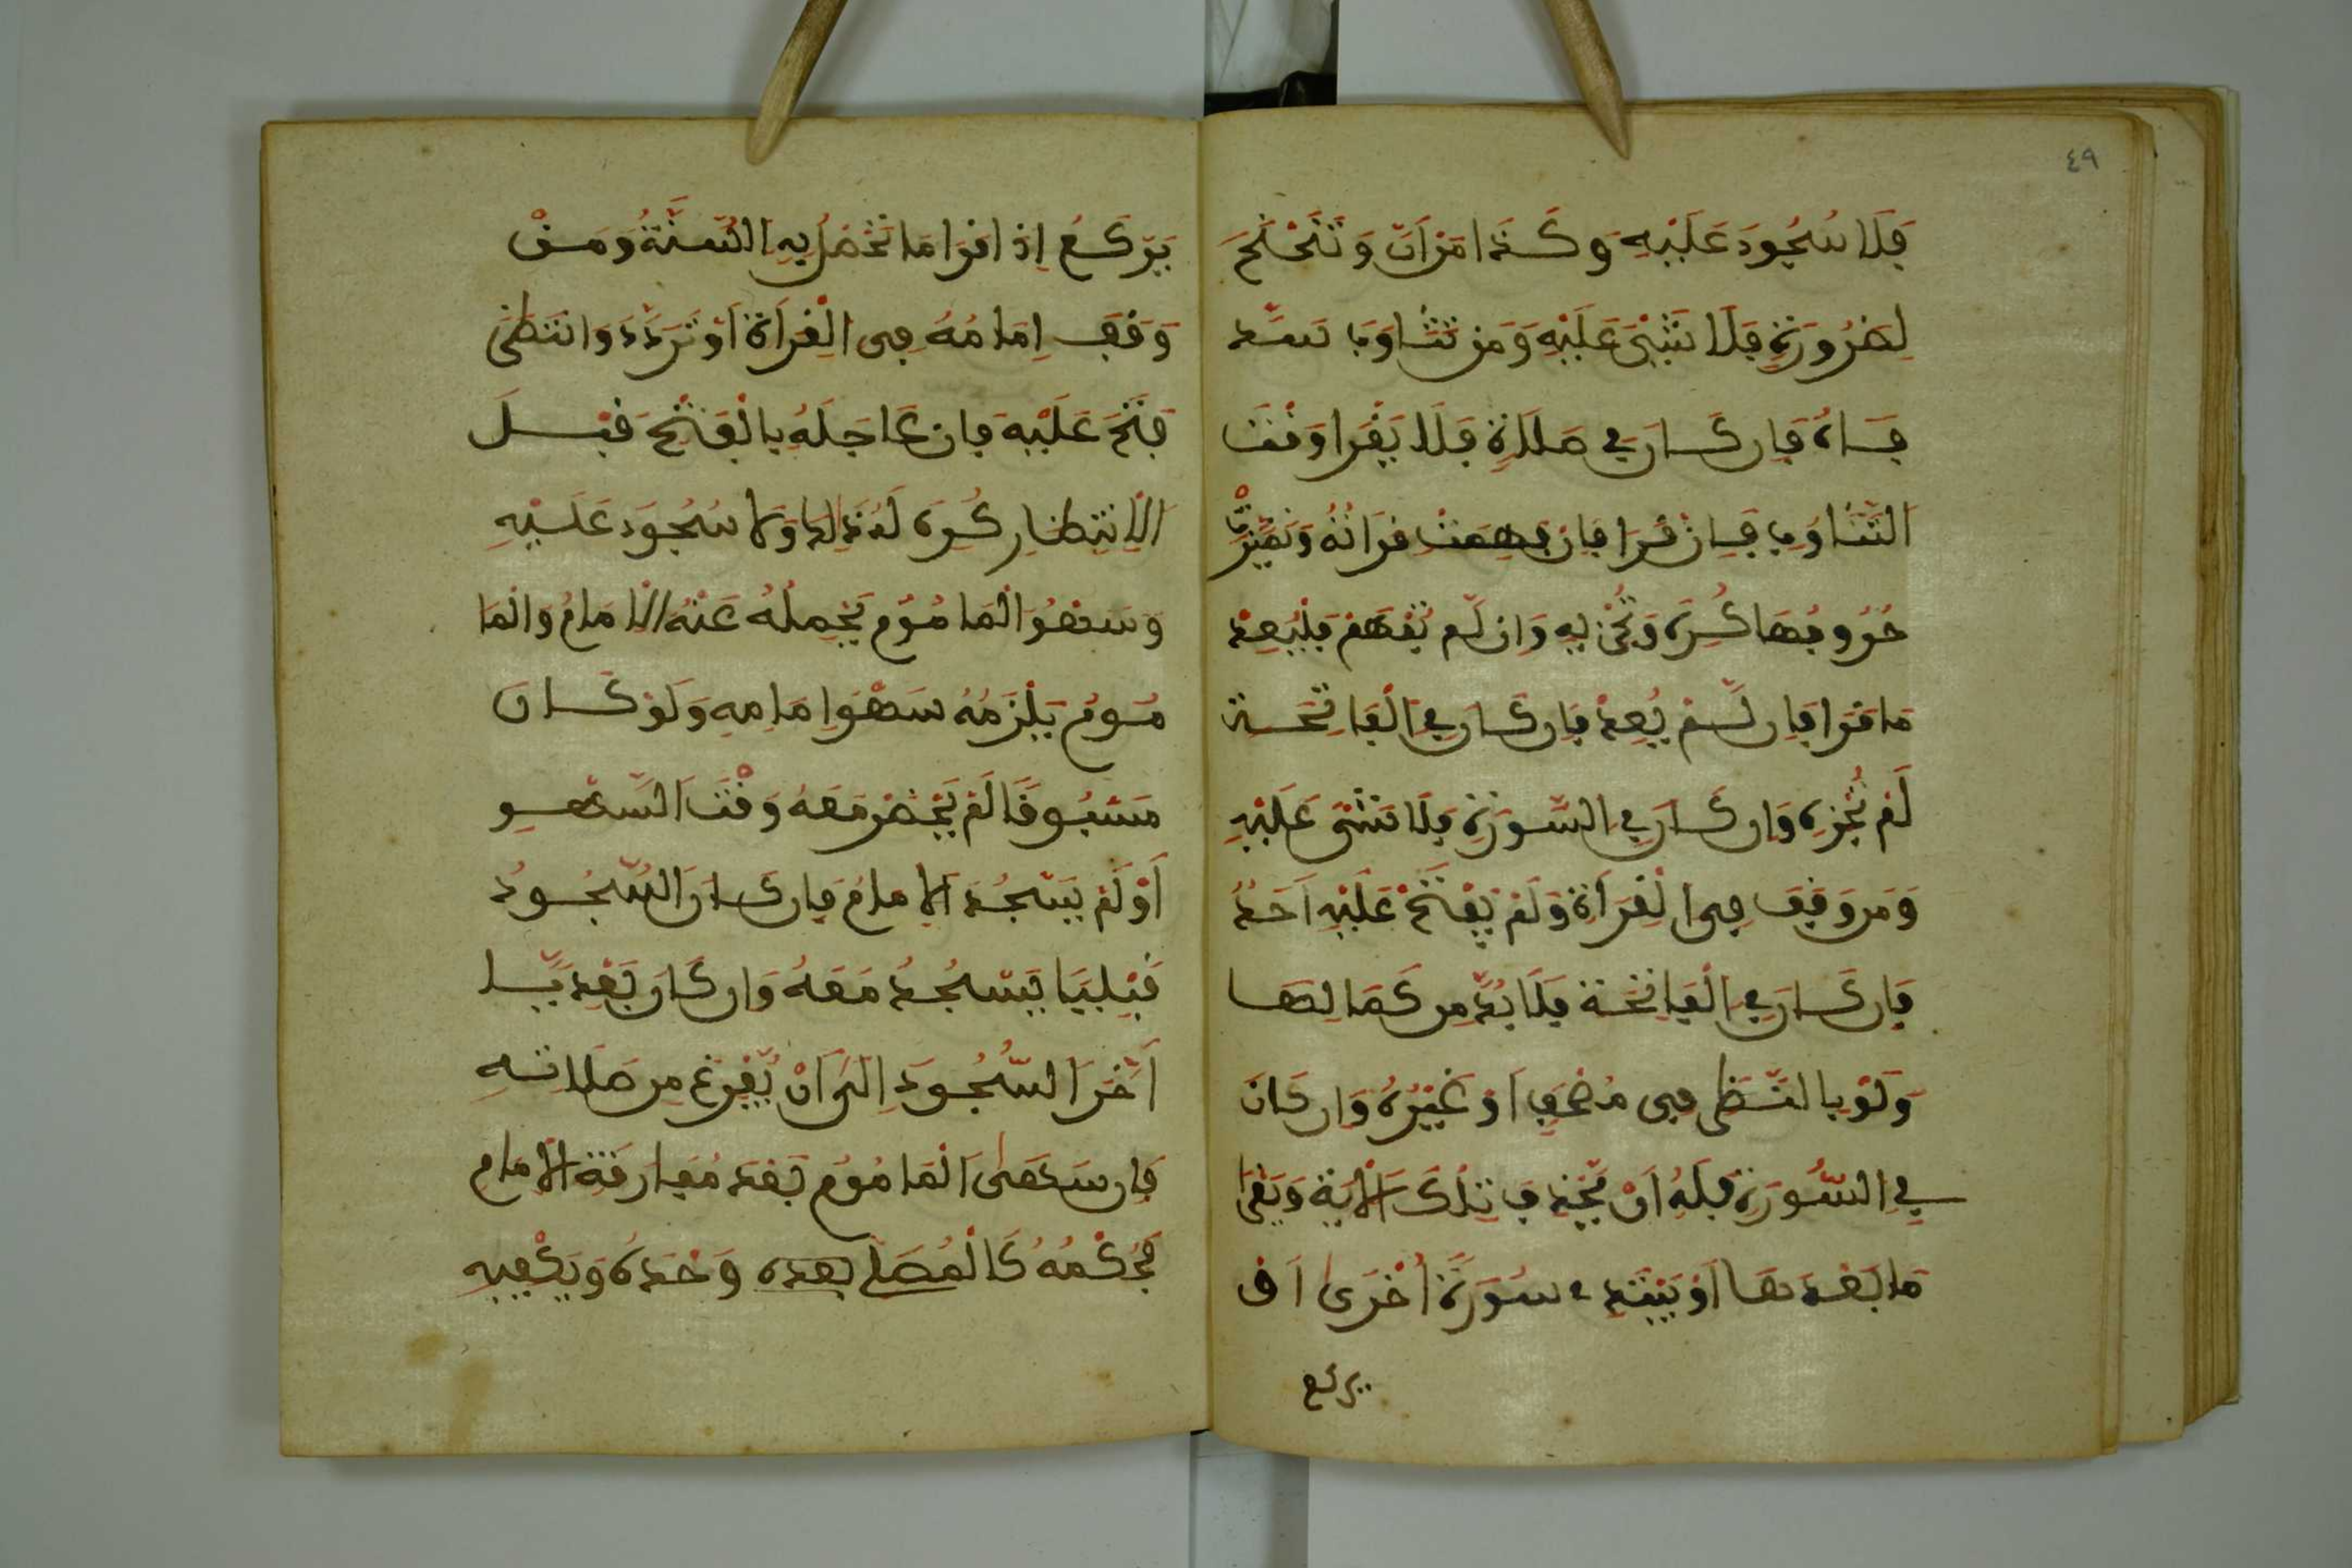 ٤٩
فَلَا سُجُودَ عَلَيْهِ وَكَذا مَن انّ وَتَنَحْنَحَ
لِضَرُورَةٍ فَلَا شَيْئَ عَلَيْهِ وَمَن تَثَاوَبَ سَدَّ
فَاهُ فَإن كَانَ فِي صَلَاةٍ فَلَا يَقْرَا وَقْتَ
التَّثَاوُبِ فَإنْ قَرَا فَإن فُهِمَتْ قرَاتُهُ وَتَمَيَّزَتْ
حُرُوفُهَا كُرِهَ وَتُجْزِيهِ وَان لَم تُفْهَمْ فَلْيُعِدْ
مَا قَرَا فَإن لَمْ يُعِدْ فَإن كَانَ فِي الْفَاتِحَةِ
لَمْ تُجْزِهِ وَإن كَانَ فِي السُّورَةِ فَلَا شَيْئَ عَلَيْهِ
وَمَن وَقَفَ فِي الْقِرَاةِ وَلَمْ يَفْتَحْ عَلَيْهِ اَحَدٌ
فَإن كَانَ فِي الْفَاتِحَةِ فَلَا بُدَّ مِن كَمَالِهَا
وَلَوْ بِالنَّظَرِ فِي مُصْحَفٍ اَوْ غَيْرُهُ وَإن كَانَ
فِي السُّورَةِ فَلَهُ اَنْ يَّحْذِفَ تِلْكَ الْايَةَ وَيَقْرَا
مَا بَعْدَهَا اَوْ يَبْتَدِء سُورَةً اُخْرَى اَو
يركع
يَرْكَعُ إذا قرَا مَا تَحْصُلُ بِهِ السُّنَّةُ وَمَنْ
وَقَفَ اِمَامُهُ فِي الْقِرَاةِ اَوْ تَرَدَّدَ وَانْتَظَرَ
فَتَحَ عَلَيْهِ فإن عَاجَلَهُ بِالْفَتْحِ قَبْلَ
الْاِنْتِظَارِ كُرِهَ لَهُ ذَالِكَ وَلَا سُجُودَ عَلَيْهِ
وَسَهْوُ الْمَامُومِ يَحْمِلُهُ عَنْهُ الْاِمَامُ وَالْمَا
مُومُ يَلْزَمُهُ سَهْوُ اِمَامِهِ وَلَوْ كَانَ
مَسْبُوقًا لَمْ يَحْضُرْ مَعَهُ وَقْتَ السَّهْوِ
اَوْ لَمْ يَسْجُدِ الْاِمَامُ فَإن كَانَ السُّجُودُ
قَبْلِيَّا يَسْجُدُ مَعَهُ وَإن كَانَ بَعْدِيّا
اَخَّرَ السُّجُودَ اِلَى اَنْ يَّفْرُغَ مِن صَلَاتِهِ
فَإن سَهَى الْمَامُومُ بَعْدَ مُفَارَقَةِ الْاِمَامِ
فَحُكْمُهُ كَالْمُصَلِّي بعده وَحْدَهُ وَيَكْفِيهِ